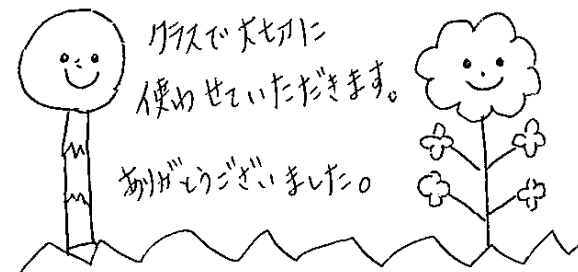 クラスで大切に
使わせていただきます。
ありがとうございました。